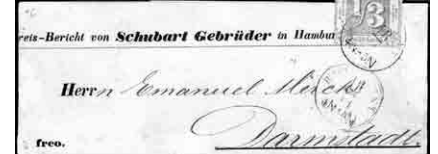 reis-Bericht von Schubart Gebrüder in Hambu
Herrn Emanuel Merck
Darmstadt.
freo.